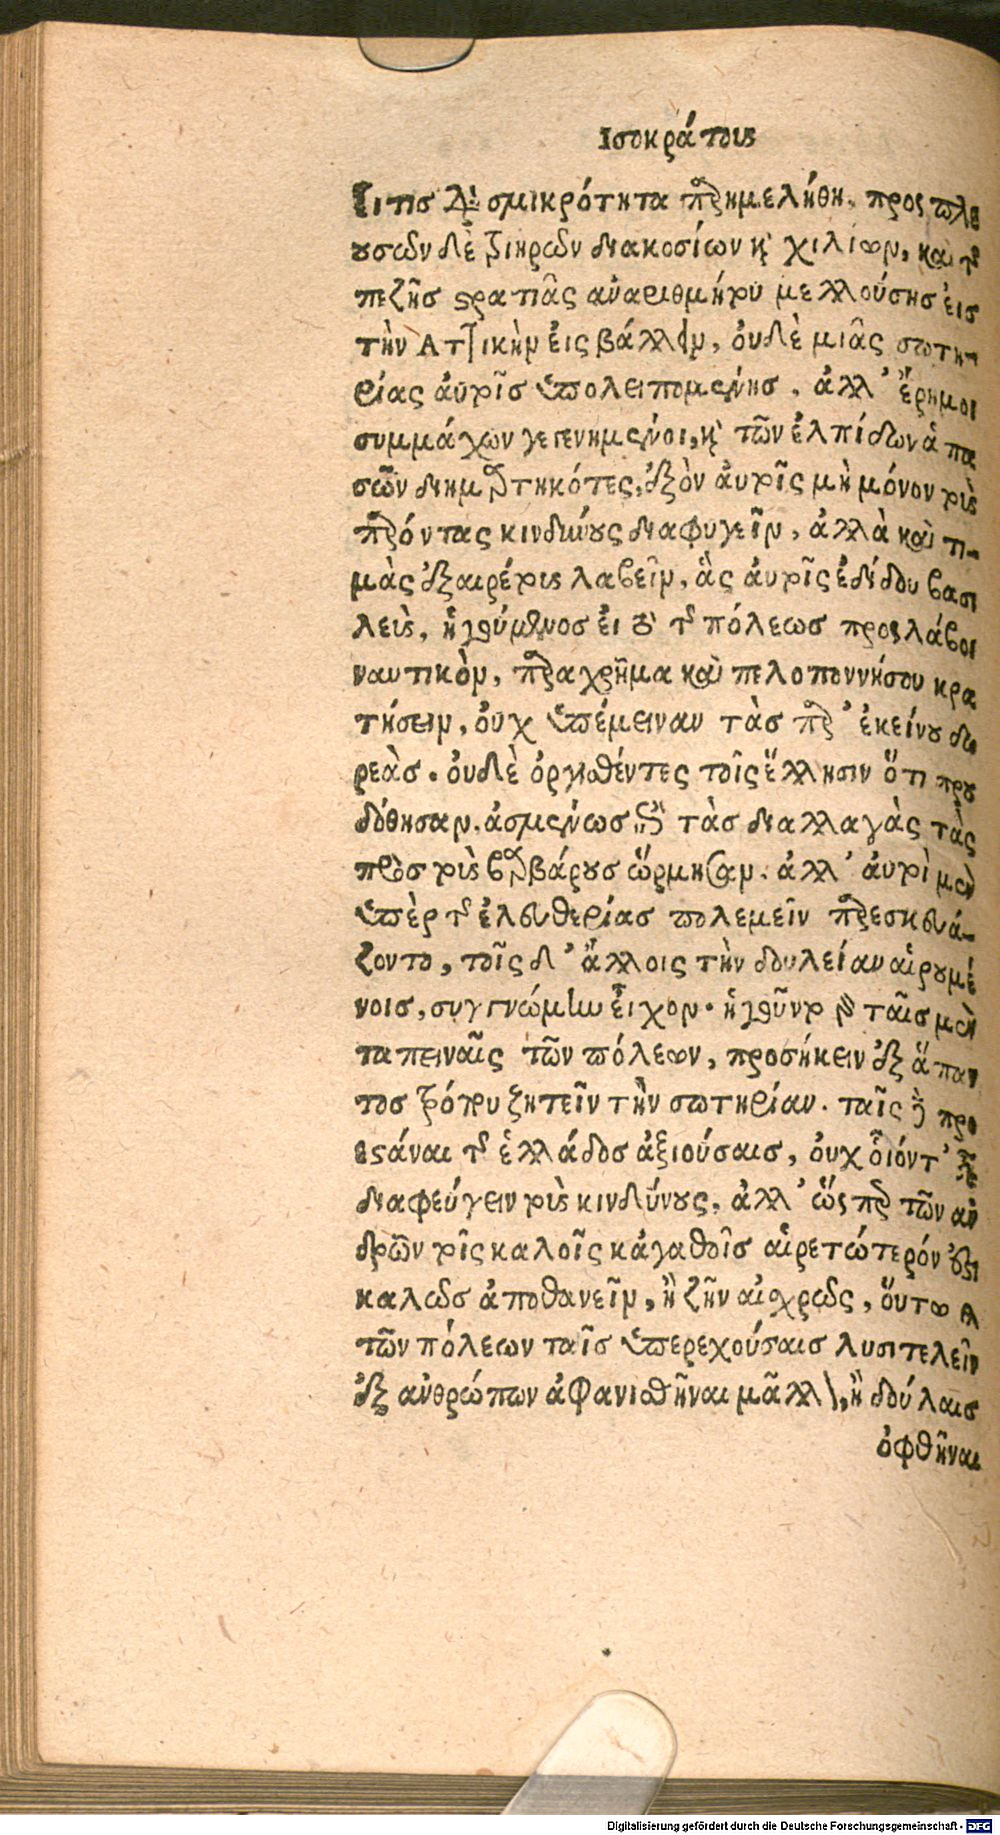 Ισοκράτους
εἴ τις διὰ σμικρότητα παρημελήθη. προς πλε
ουσῶν δὲ τριηρῶν διακοσίων καὶ χιλίων, καὶ τῆς
πεζῆς στρατιᾶς ἀναριθμήτου μελλούσης εἰς
τὴν Ἀττικὴν εἰςβάλλειν, οὐδὲ μιᾶς σωτη-
ρίας αὐτοῖς ὑπολειπομένης. ἀλλ' ἔρημοι
συμμάχων γεγενημένοι, καὶ τῶν ἐλπίδων ἁπα
σῶν διημαρτηκότες, ἐξὸν αὐτοῖς μὴ μόνον τοὺς
παρόντας κινδύνους διαφυγεῖν, ἀλλὰ καὶ τι-
μὰς ἐξαιρέτους λαβεῖν, ἃς αὐτοῖς ἐδίδου βασι
λεὺς, ἡγούμενος εἰ τὸ τῆς πόλεως προςλάβοι
ναυτικὸν, παραχρῆμα καὶ πελοποννήσου κρα
τήσειν, οὐχ ὑπέμειναν τὰς παρ' ἐκείνου δω
ρεὰς. οὐδὲ ὀργισθέντες τοῖς ἕλλησιν ὅτι πρου
δόθησαν, ἀσμένως ἐπὶ τὰς διαλλαγὰς τὰς
πρὸς τοὺς βαρβάρους ὥρμησαν. ἀλλ' αὐτοὶ μὲν
ὑπὲρ τῆς ἐλευθερίας πολεμεῖν παρεσκευά-
ζοντο, τοῖς δ' ἄλλοις τὴν δουλείαν αἱρουμέ
νοις, συγγνώμην εἶχον. ἡγοῦντο γὰρ ταῖς μὲν
ταπειναῖς τῶν πόλεων, προσήκειν ἐξ ἅπαν
τος τρόπου ζητεῖν τὴν σωτηρίαν. ταῖς δὲ προ
εστάναι τῆς ἑλλάδος ἀξιούσαις, οὐχ οἷόντ' εἶναι
διαφεύγειν τοὺς κινδύνους, ἀλλ' ὥςπερ τῶν αν
δρῶν τοῖς καλοῖς κἀγαθοῖς αἱρετώτερόν ἐστι
καλῶς ἀποθανεῖν, ἢ ζῆν αἰσχρῶς, οὕτω καὶ
τῶν πόλεων ταῖς ὑπερεχούσαις λυσιτελεῖν
ἐξ ἀνθρώπων ἀφανισθῆναι μᾶλλον, ἢ δούλαις
ὀφθῆναι
Digitalisierung gefördert durch die Deutsche Forschungsgemeinschaft - DFG